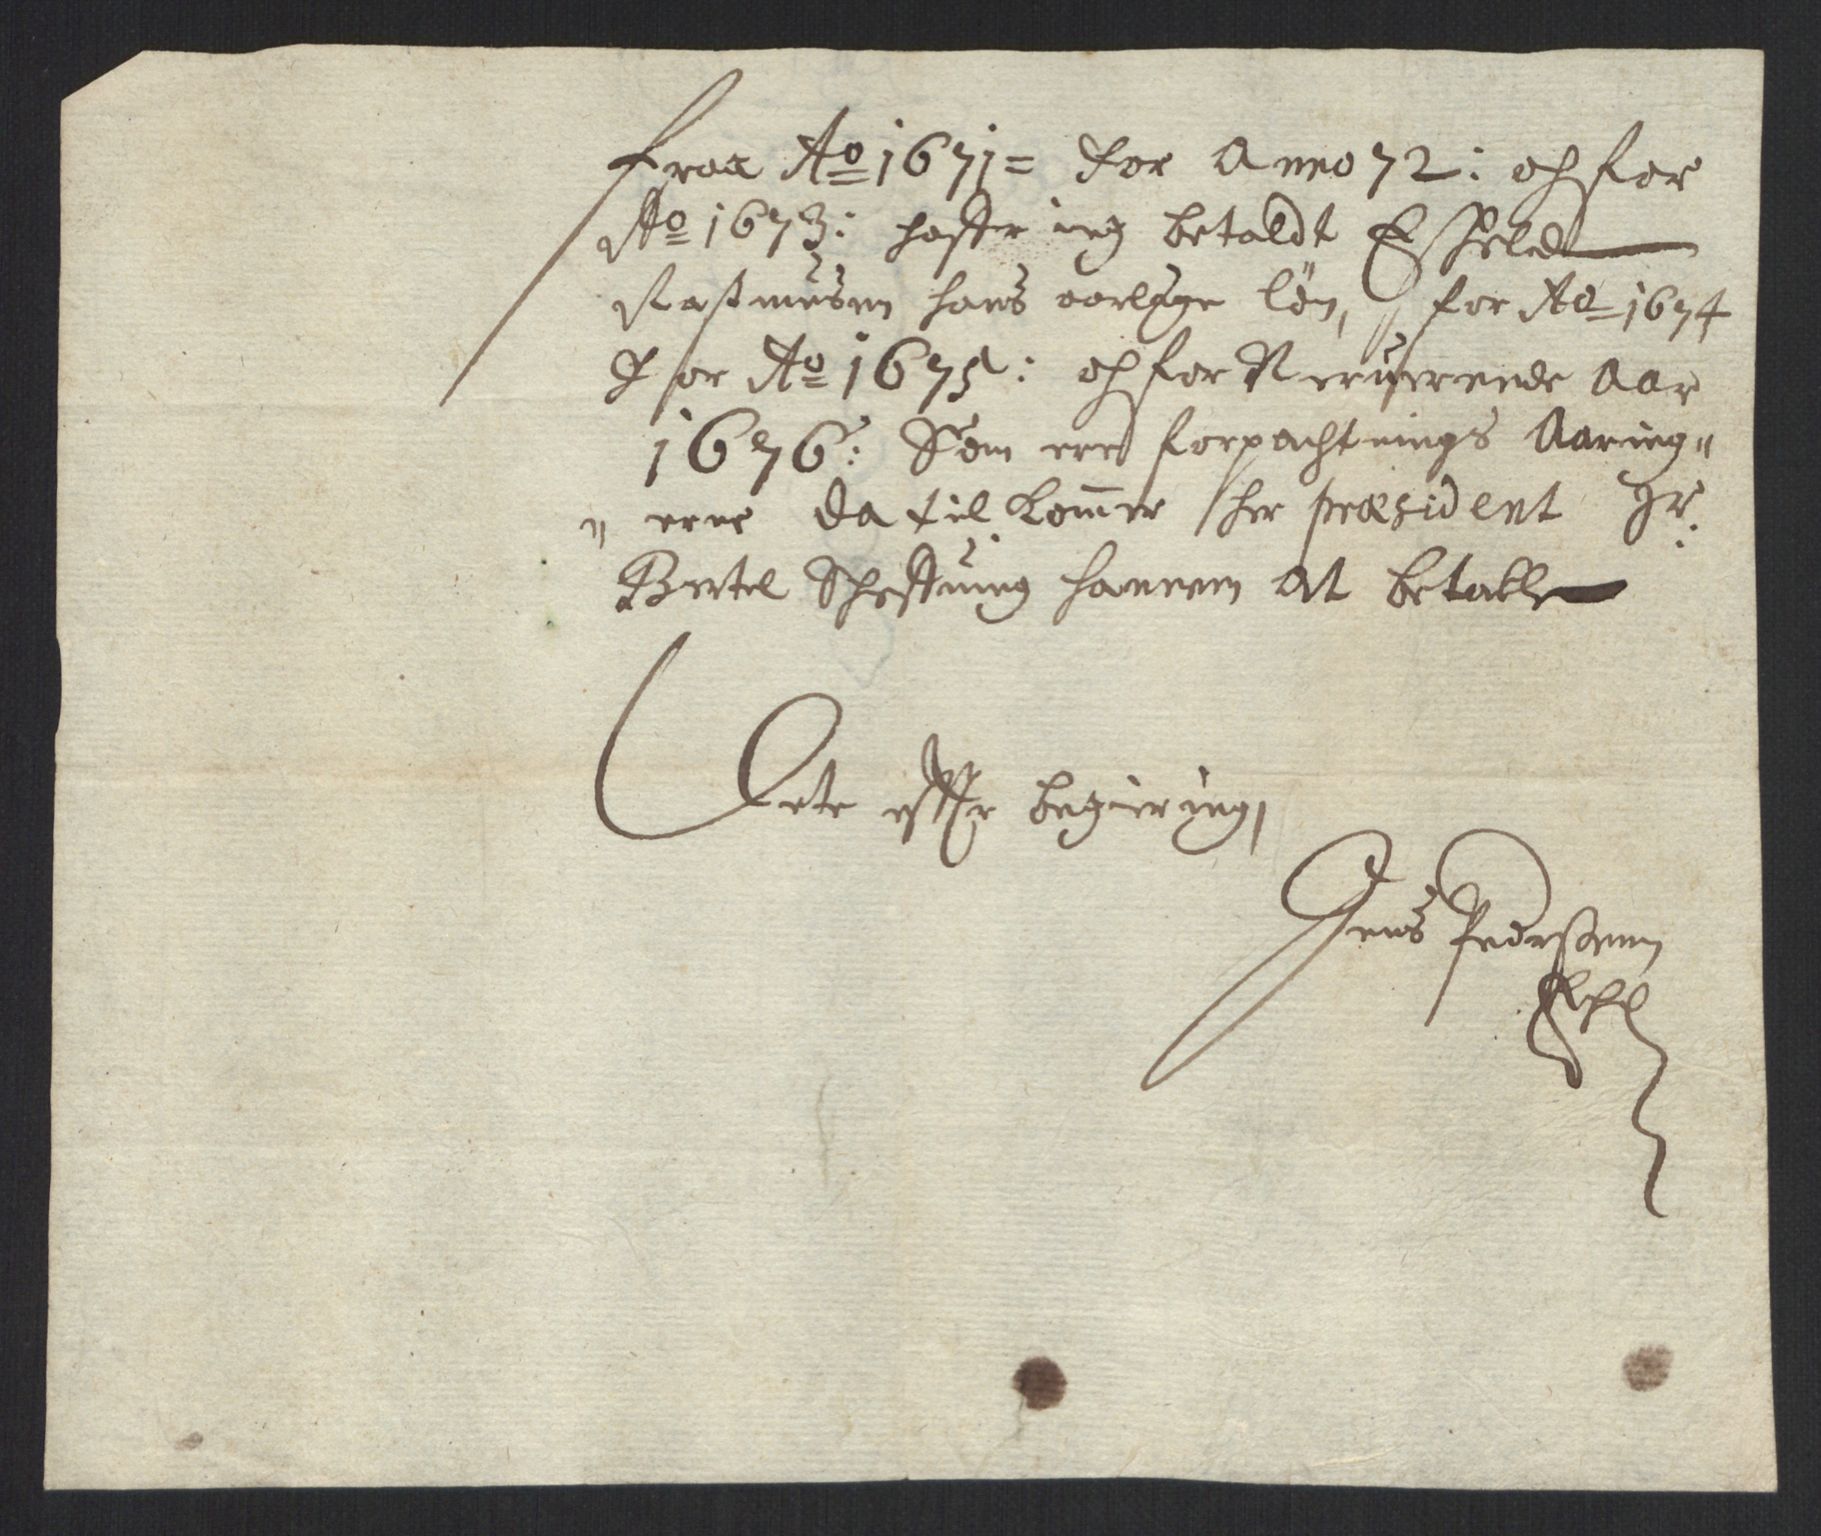 fraa Ao 1671 = for Anno 72: och for
Ao 1673: haffr ieg betaldt Eskeld
Rasmusen hans aarlige løn, for Ao 1674
for Ao 1675: och for Nerverende Aar
1676: Som ere forpachtnings Aaring〃
〃 erne da til kommer her præsident Hr:
Bertel hannem At betalle
Dete effter begiering,
Jens Pedersenn